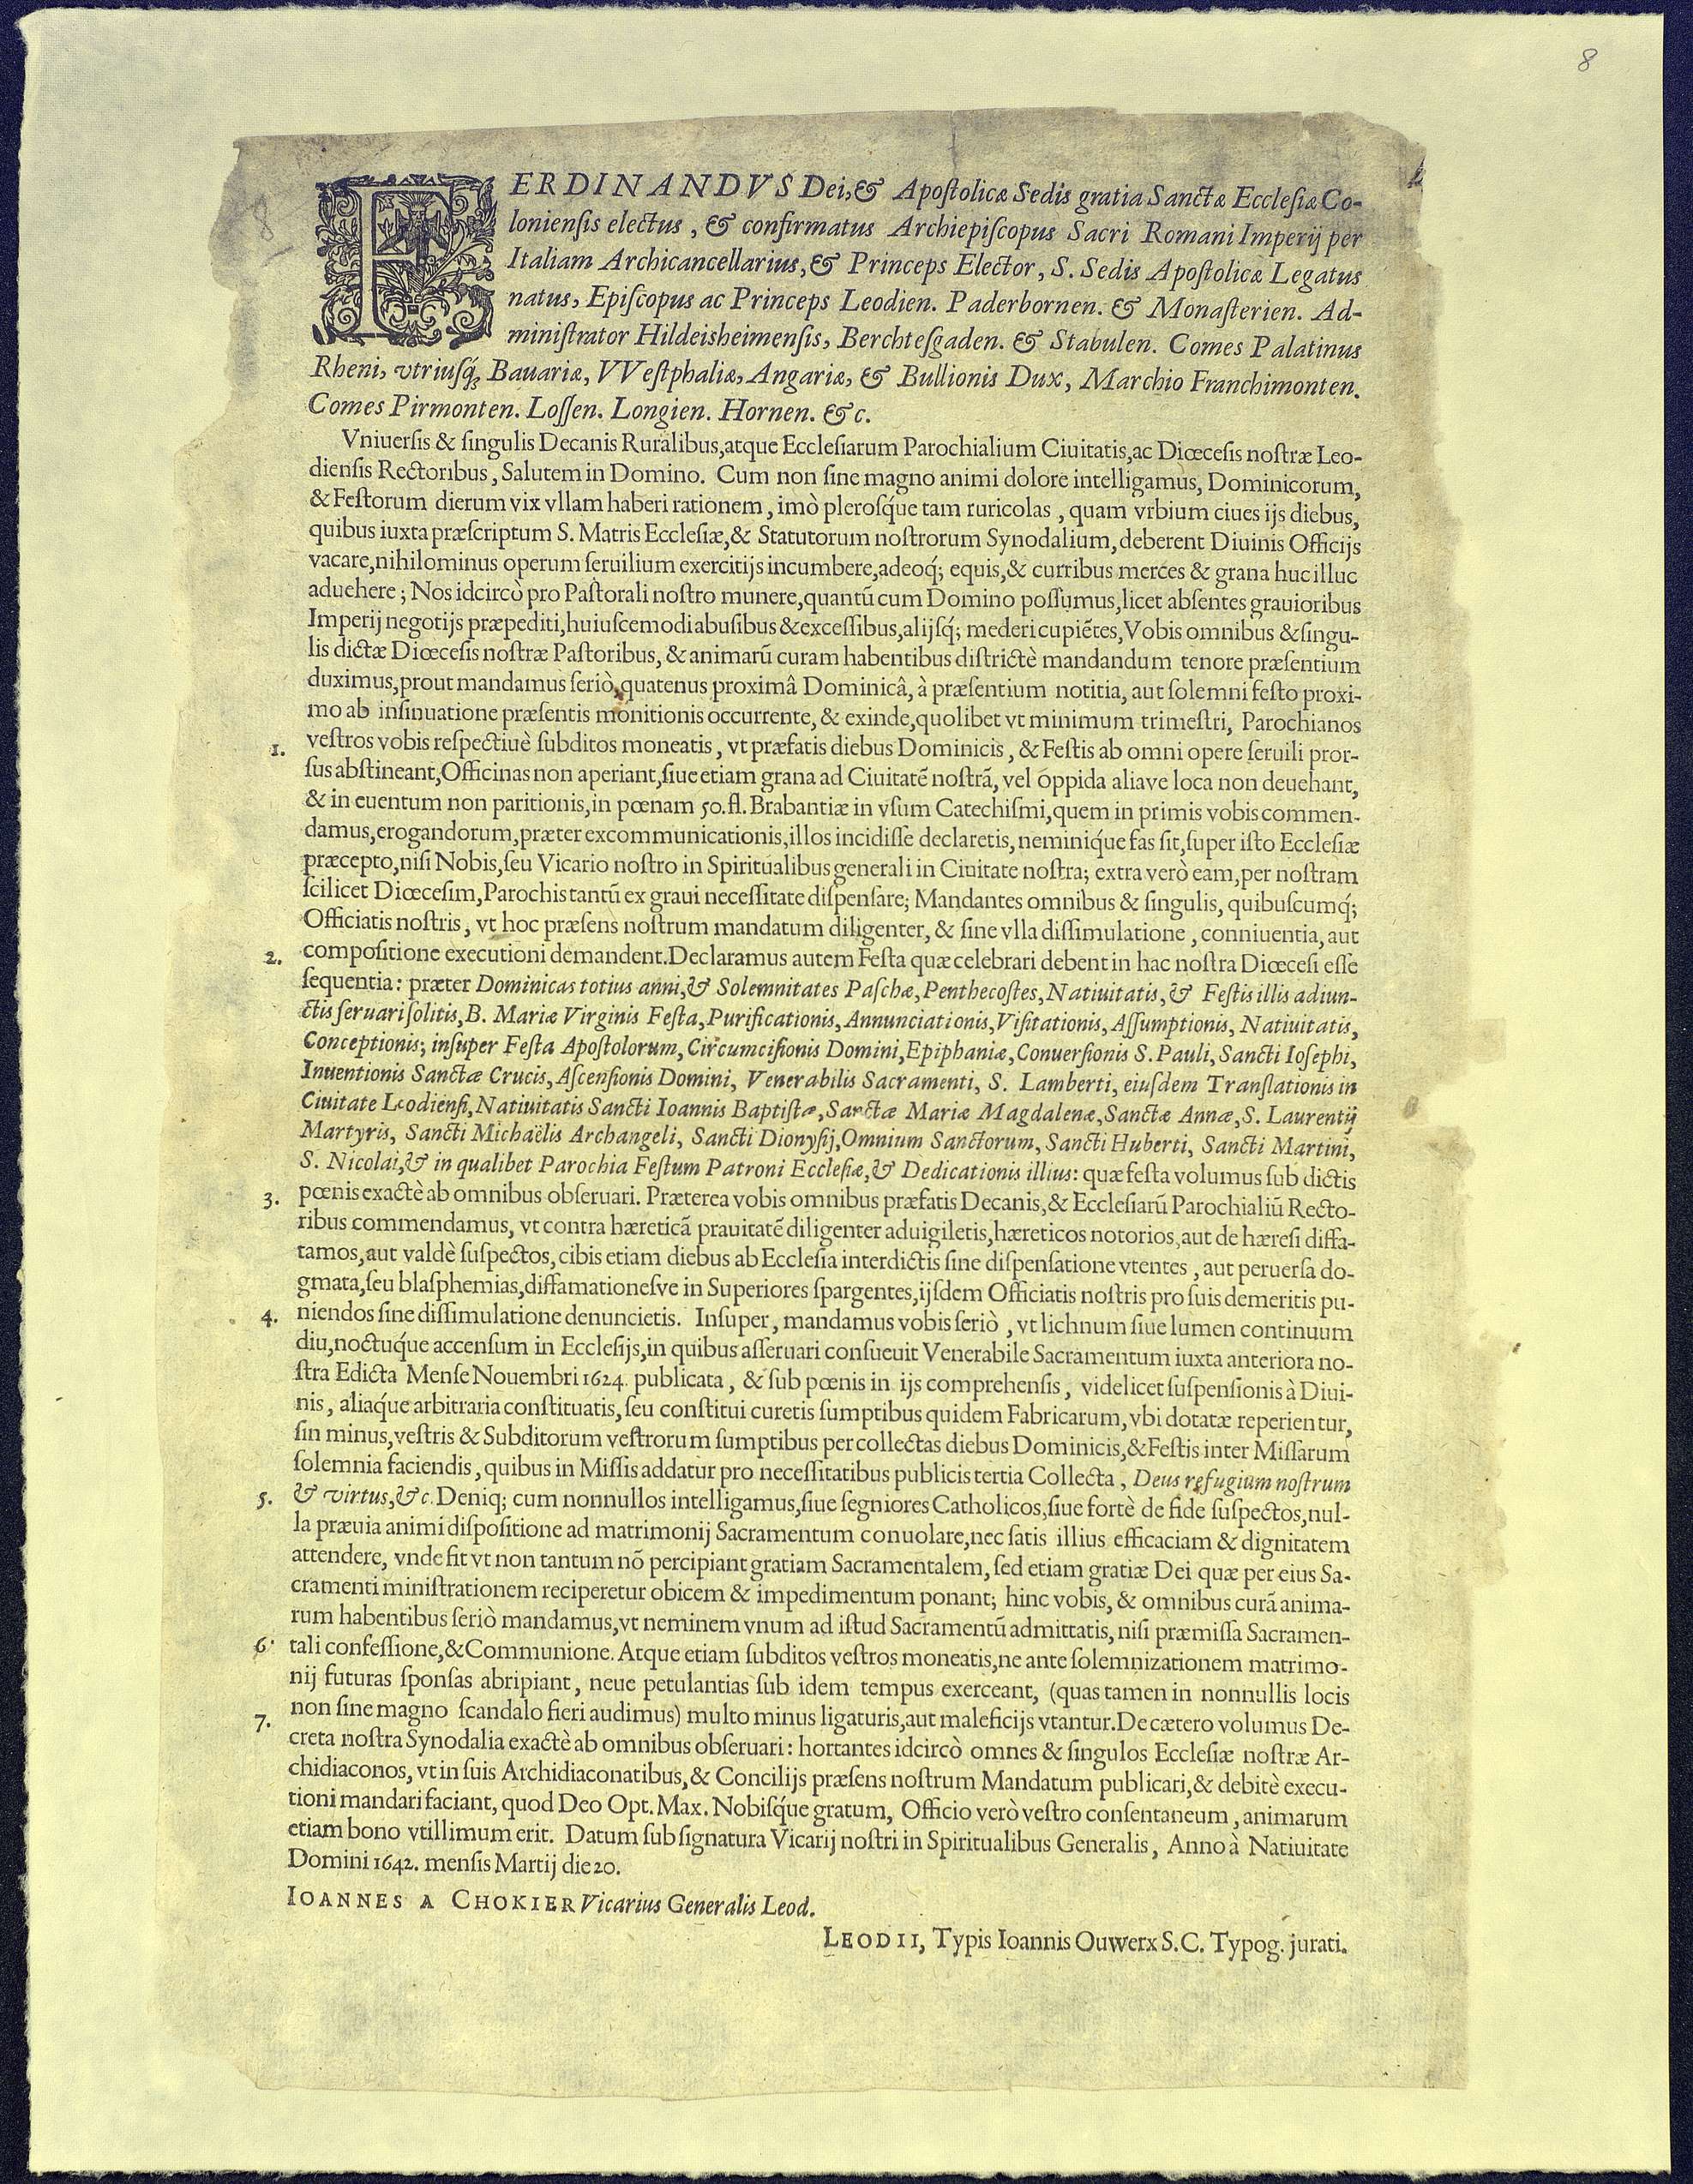 8
8
FERDINANDVS Dei, & Apostolicæ Sedis gratia Sanctæ Ecclesiæ Co-
loniensis electus, & confirmatus Archiepiscopus Sacri Romani Imperij per
Italiam Archicancellarius, & Princeps Elector, S. Sedis Apostolicæ Legatus
natus, Episcopus ac Princeps Leodien. Paderbornen. & Monasterien. Ad-
ministrator Hildeisheimensis, Berchtesgaden. & Stabulen. Comes Palatinus
Rheni, vtriusq; Bauariæ, VVestphaliæ, Angariæ, & Bullionis Dux, Marchio Franchimonten.
Comes Pirmonten. Lossen. Longien. Hornen. &c.
Vniuersis & singulis Decanis Ruralibus, atque Ecclesiarum Parochialium Ciuitatis, ac Diœcesis nostræ Leo-
diensis Rectoribus, Salutem in Domino. Cum non sine magno animi dolore intelligamus, Dominicorum,
& Festorum dierum vix vllam haberi rationem, imò plerosq́ue tam ruricolas, quam vrbium ciues ijs diebus,
quibus iuxta præscriptum S. Matris Ecclesiæ, & Statutorum nostrorum Synodalium, deberent Diuinis Officijs
vacare, nihilominus operum seruilium exercitijs incumbere, adeoq́; equis, & curribus merces & grana huc illuc
aduehere; Nos idcircò pro Pastorali nostro munere, quantũ cum Domino possumus, licet absentes grauioribus
Imperij negotijs præpediti, huiuscemodi abusibus & excessibus, alijsq́; mederi cupiẽtes, Vobis omnibus & singu-
lis dictæ Diœcesis nostræ Pastoribus, & animarũ curam habentibus districtè mandandum tenore præsentium
duximus, prout mandamus seriò, quatenus proximâ Dominicâ, à præsentium notitia, aut solemni festo proxi-
mo ab insinuatione præsentis monitionis occurrente, & exinde, quolibet vt minimum trimestri, Parochianos
1. vestros vobis respectiuè subditos moneatis, vt præfatis diebus Dominicis, & Festis ab omni opere seruili pror-
sus abstineant, Officinas non aperiant, siue etiam grana ad Ciuitatẽ nostrã, vel oppida aliave loca non deuehant,
& in euentum non paritionis, in pœnam 50. fl. Brabantiæ in vsum Catechismi, quem in primis vobis commen-
damus, erogandorum, præter excommunicationis, illos incidisse declaretis, neminiq́ue fas sit, super isto Ecclesiæ
præcepto, nisi Nobis, seu Vicario nostro in Spiritualibus generali in Ciuitate nostra; extra verò eam, per nostram
scilicet Diœcesim, Parochis tantũ ex graui necessitate dispensare; Mandantes omnibus & singulis, quibuscumq́;
Officiatis nostris, vt hoc præsens nostrum mandatum diligenter, & sine vlla dissimulatione, conniuentia, aut
2. compositione executioni demandent. Declaramus autem Festa quæ celebrari debent in hac nostra Diœcesi esse
sequentia: præter Dominicas totius anni, & Solemnitates Paschæ, Penthecostes, Natiuitatis, & Festis illis adiun-
ctis seruari solitis, B. Mariæ Virginis Festa, Purificationis, Annunciationis, Visitationis, Assumptionis, Natiuitatis,
Conceptionis; insuper Festa Apostolorum, Circumcisionis Domini, Epiphaniæ, Conuersionis S. Pauli, Sancti Iosephi,
Inuentionis Sanctæ Crucis, Ascensionis Domini, Venerabilis Sacramenti, S. Lamberti, eiusdem Translationis in
Ciuitate Leodiensi, Natiuitatis Sancti Ioannis Baptistæ, Sanctæ Mariæ Magdalenæ, Sanctæ Annæ, S. Laurentij
Martyris, Sancti Michaëlis Archangeli, Sancti Dionysij, Omnium Sanctorum, Sancti Huberti, Sancti Martini,
S. Nicolai, & in qualibet Parochia Festum Patroni Ecclesiæ, & Dedicationis illius: quæ festa volumus sub dictis
3. pœnis exactè ab omnibus obseruari. Præterea vobis omnibus præfatis Decanis, & Ecclesiarũ Parochialiũ Recto-
ribus commendamus, vt contra hæreticã prauitatẽ diligenter aduigiletis, hæreticos notorios, aut de hæresi diffa-
tamos, aut valdè suspectos, cibis etiam diebus ab Ecclesia interdictis sine dispensatione vtentes, aut peruersa do-
gmata, seu blasphemias, diffamationesve in Superiores spargentes, ijsdem Officiatis nostris pro suis demeritis pu-
4. niendos sine dissimulatione denuncietis. Insuper, mandamus vobis seriò, vt lichnum siue lumen continuum
diu, noctuq́ue accensum in Ecclesijs, in quibus asseruari consueuit Venerabile Sacramentum iuxta anteriora no-
stra Edicta Mense Nouembri 1624. publicata, & sub pœnis in ijs comprehensis, videlicet suspensionis à Diui-
nis, aliaq́ue arbitraria constituatis, seu constitui curetis sumptibus quidem Fabricarum, vbi dotatæ reperientur,
sin minus, vestris & Subditorum vestrorum sumptibus per collectas diebus Dominicis, & Festis inter Missarum
solemnia faciendis, quibus in Missis addatur pro necessitatibus publicis tertia Collecta, Deus refugium nostrum
5. & virtus, &c. Deniq; cum nonnullos intelligamus, siue segniores Catholicos, siue fortè de fide suspectos, nul-
la præuia animi dispositione ad matrimonij Sacramentum conuolare, nec satis illius efficaciam & dignitatem
attendere, vnde fit vt non tantum nõ percipiant gratiam Sacramentalem, sed etiam gratiæ Dei quæ per eius Sa-
cramenti ministrationem reciperetur obicem & impedimentum ponant; hinc vobis, & omnibus curã anima-
rum habentibus seriò mandamus, vt neminem vnum ad istud Sacramentũ admittatis, nisi præmissa Sacramen-
6. tali confessione, & Communione. Atque etiam subditos vestros moneatis, ne ante solemnizationem matrimo-
nij futuras sponsas abripiant, neue petulantias sub idem tempus exerceant, (quas tamen in nonnullis locis
7. non sine magno scandalo fieri audimus) multo minus ligaturis, aut maleficijs vtantur. De cætero volumus De-
creta nostra Synodalia exactè ab omnibus obseruari: hortantes idcircò omnes & singulos Ecclesiæ nostræ Ar-
chidiaconos, vt in suis Archidiaconatibus, & Concilijs præsens nostrum Mandatum publicari, & debitè execu-
tioni mandari faciant, quod Deo Opt. Max. Nobisq́ue gratum, Officio verò vestro consentaneum, animarum
etiam bono vtillimum erit. Datum sub signatura Vicarij nostri in Spiritualibus Generalis, Anno à Natiuitate
Domini 1642. mensis Martij die 20.
IOANNES A CHOKIER Vicarius Generalis Leod.
LEODII, Typis Ioannis Ouwerx S.C. Typog. jurati.